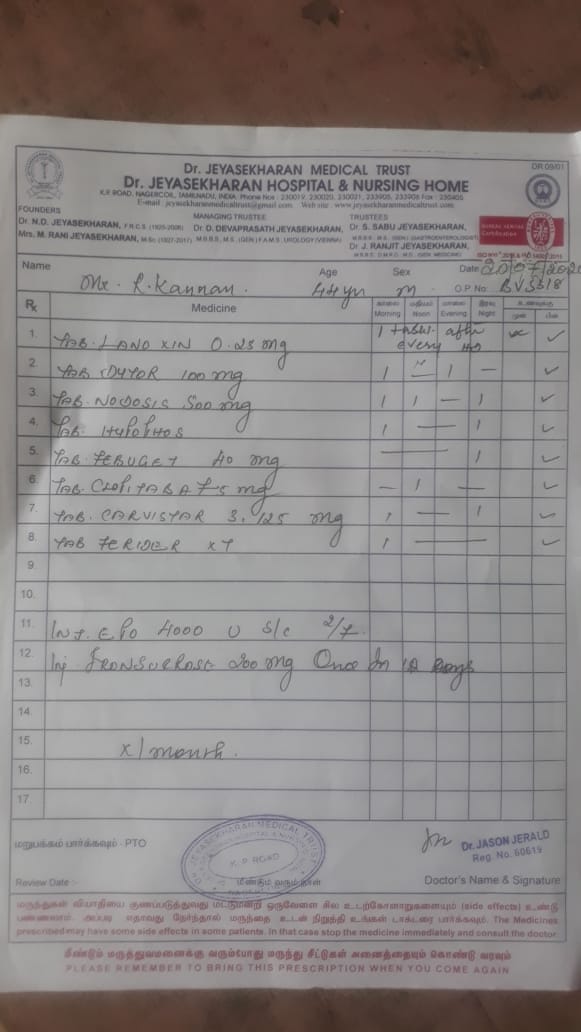 DR 09/01
Dr. JEYASEKHARAN MEDICAL TRUST
Dr. JEYASEKHARAN HOSPITAL & NURSING HOME
K.P. ROAD, NAGERCOIL, TAMILNADU, INDIA
E-mail : jeyasekharanmedicaltrust@gmail.com Web site : www.jeyasekharanmedicaltrust.com
FOUNDERS
Dr. N.D. JEYASEKHARAN, F.R.C.S (1925-2008)
Mrs. M. RANI JEYASEKHARAN, M.Sc (1927-2017)
MANAGING TRUSTEE
Dr. O. DEVAPRASATH JEYASEKHARAN,
M.B.B.S., M.S. (GEN) F.A.M.S. UROLOGY (VIENNA)
TRUSTEES
Dr. S. SABU JEYASEKHARAN,
Dr. J. RANJIT JEYASEKHARAN,
Name Mr. R. Kannan. Age 44 yr Sex M Date
O.P. No:
Rx Medicine காலை Morning மதியம் Noon மாலை Evening இரவு Night உணவுக்கு முன் பின்
1. TAB. LANOXIN 0.25 mg 1 after every HD
2. TAB 100 mg 1 — 1 —
3. TAB. NODOSIS 500 mg 1 1 — 1
4. TAB. 1 — 1
5. TAB. FEBUGET 40 mg — 1
6. TAB. CLOPITAB A 75 mg — 1 —
7. TAB. CARVISTAR 3.125 mg 1 — 1
8. TAB x 1 —
9.
10.
11. INJ. EPO 4000 U S/C 2/7.
12. Inj 200 mg Once In Days
13.
14.
15. x 1 month.
16.
17.
மறுபக்கம் பார்க்கவும் - PTO
K. P. ROAD
Dr. JASON JERALD
Reg. No. 60619
Review Date :- மீண்டும் வரும் நாள் Doctor's Name & Signature
மருந்துகள் வியாதியை குணப்படுத்துவது மட்டுமன்றி ஒருவேளை சில உடற்கோளாறுகளையும் (side effects) உண்டு
பண்ணலாம். அப்படி ஏதாவது நேர்ந்தால் மருந்தை உடன் நிறுத்தி உங்கள் டாக்டரை பார்க்கவும். The Medicines
prescribed may have some side effects in some patients. In that case stop the medicine immediately and consult the doctor
மீண்டும் மருத்துவமனைக்கு வரும்போது மருந்து சீட்டுகள் அனைத்தையும் கொண்டு வரவும்
PLEASE REMEMBER TO BRING THIS PRESCRIPTION WHEN YOU COME AGAIN